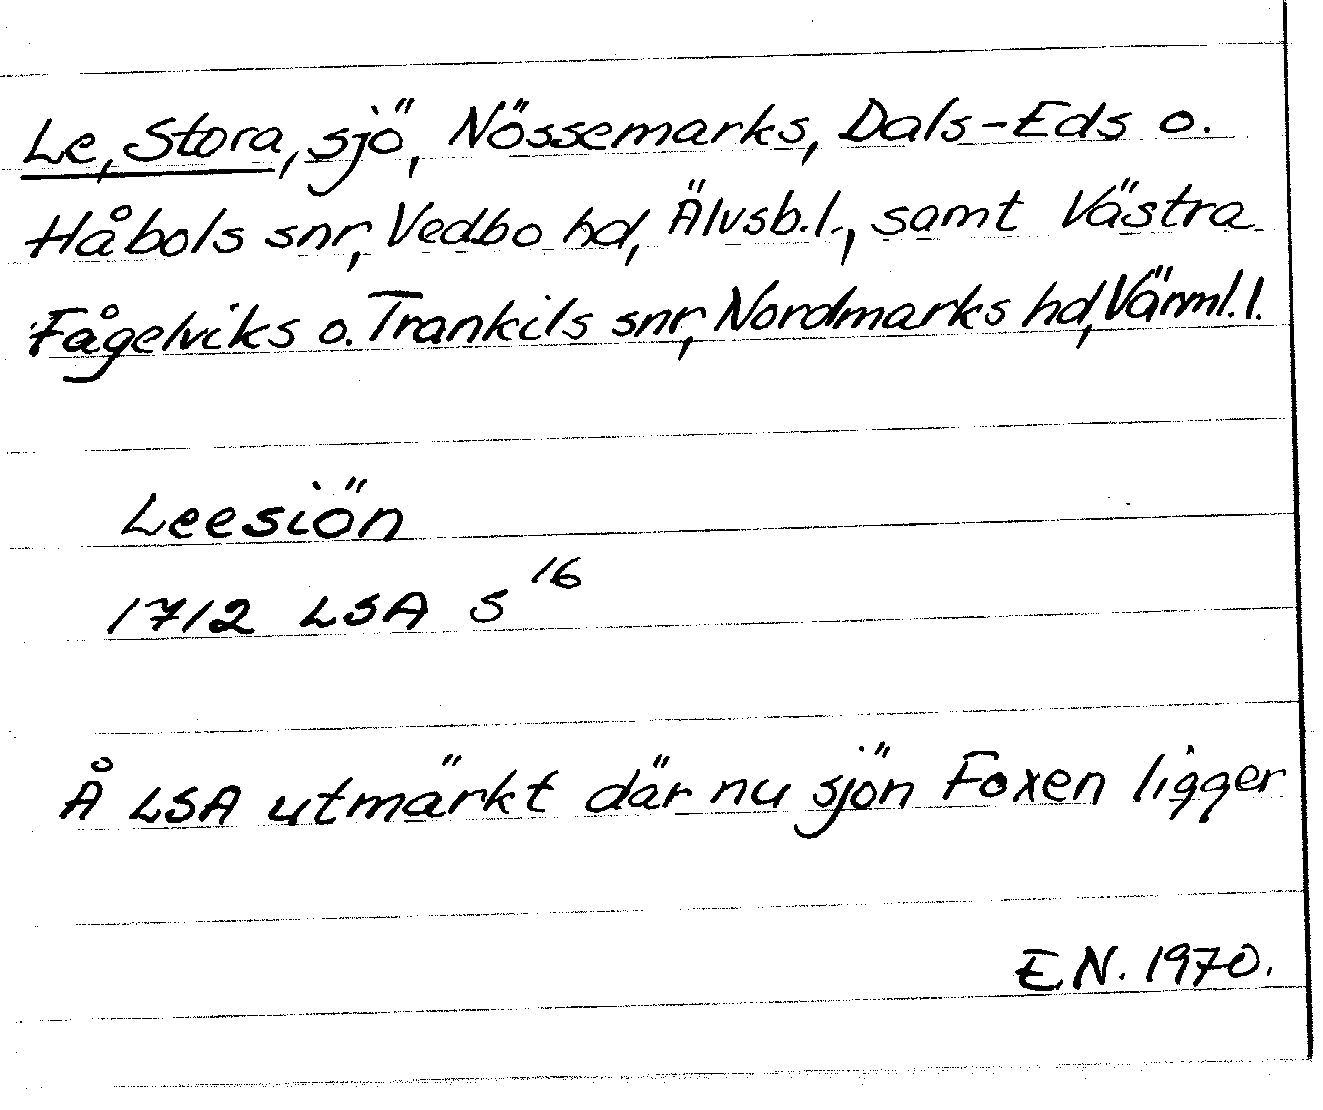 Le, Stora, sjö, Nössemarks, Dals-Eds o.
Håbols snr, Vedbo hd, Älvsb.l., samt Västra
Fågelviks o. Trankils snr, Nordmarks hd, Värml.l.
Leesiön
1712 LSA S 16
Å LSA utmärkt där nu sjön Foxen ligger
E.N. 1970.